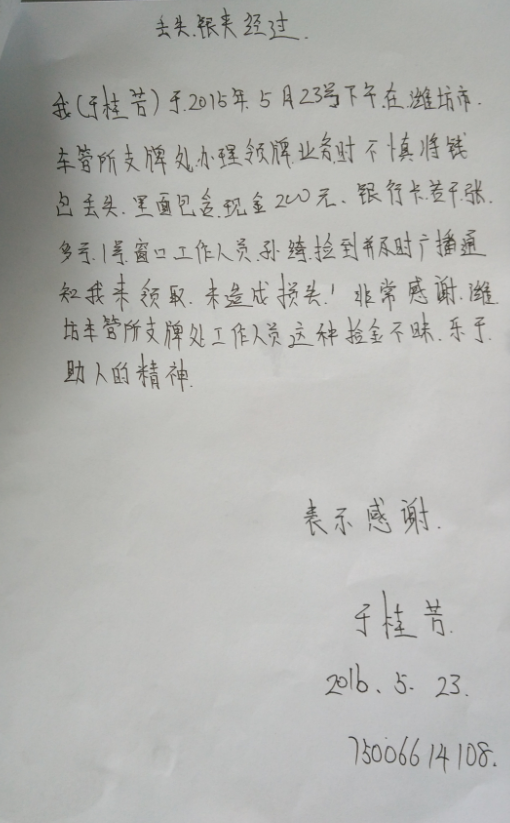 丢失.钱夹经过.
我(于桂芳)于.2015年.5月23号下午.在.潍坊市.
车管所支牌处.办理领牌.业务时不慎将钱
包丢失.里面包含.现金200元、银行卡.若干.张.
多亏.1号.窗口工作人员.孙绮.捡到并及时广播通
知我来领取.未造成损失!非常感谢.潍
坊车管所支牌处工作人员这种拾金不昧.乐于.
助人的精神.
表示感谢.
于桂芳.
2016.5.23.
7506614108.